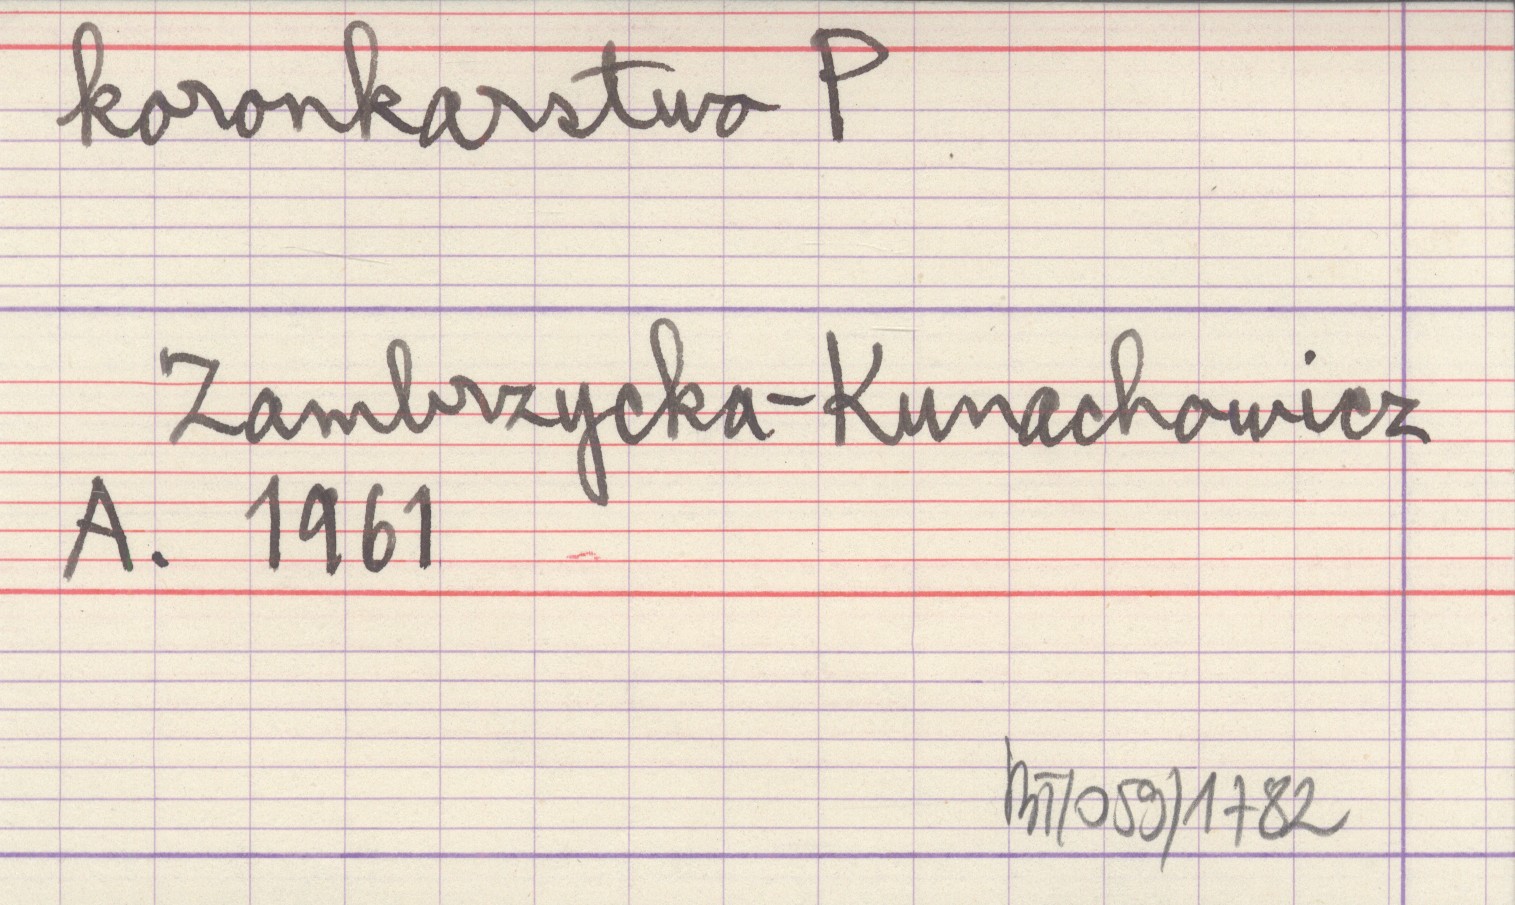 koronkarstwo P
Zambrzycka-Kunachowicz
A. 1961
/059/1782